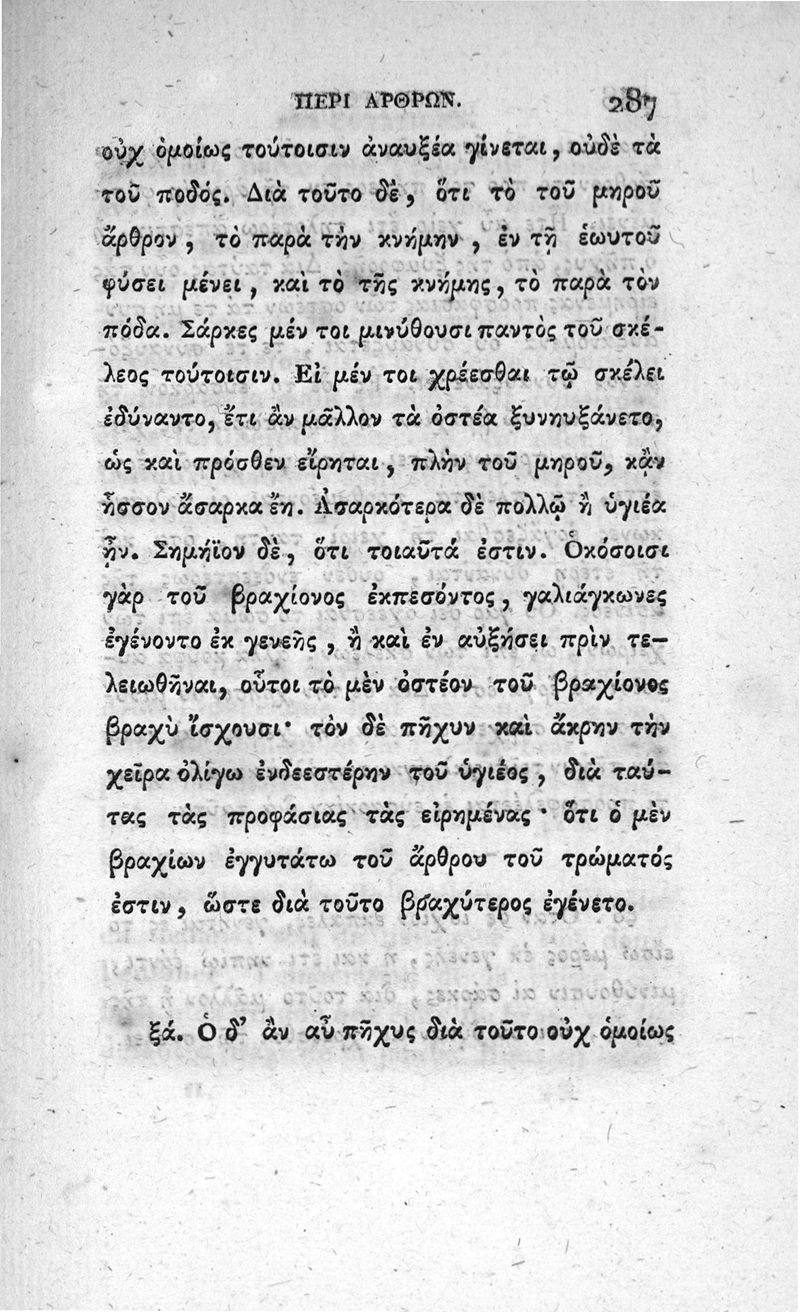 ΠΕΡΙ ΑΡΘΡΩΝ. 287
οὐχ ὁμοίως τούτοισιν ἀναυξέα γίνεται, οὐδὲ τὰ
τοῦ ποδός. Διὰ τοῦτο δὲ, ὅτι τὸ τοῦ μηροῦ
ἄρθρον, τὸ παρὰ τὴν κνήμην, ἐν τῇ ἑωυτοῦ
φύσει μένει, καὶ τὸ τῆς κνήμης, τὸ παρὰ τὸν
πόδα. Σάρκες μέν τοι μινύθουσι παντὸς τοῦ σκέ-
λεος τούτοισιν. Εἰ μέν τοι χρέεσθαι τῷ σκέλει
ἐδύναντο, ἔτι ἂν μᾶλλον τὰ ὀστέα ξυνηυξάνετο,
ὡς καὶ πρόσθεν εἴρηται, πλὴν τοῦ μηροῦ, κᾂν
ἧσσον ἄσαρκα ἔη. Ἀσαρκότερα δὲ πολλῷ ἢ ὑγιέα
ἦν. Σημήϊον δὲ, ὅτι τοιαῦτά ἐστιν. Ὁκόσοισι
γὰρ τοῦ βραχίονος ἐκπεσόντος, γαλιάγκωνες
ἐγένοντο ἐκ γενεῆς, ἢ καὶ ἐν αὐξήσει πρὶν τε-
λειωθῆναι, οὗτοι τὸ μὲν ὀστέον τοῦ βραχίονος
βραχὺ ἴσχουσι· τὸν δὲ πῆχυν καὶ ἄκρην τὴν
χεῖρα ὀλίγω ἐνδεεστέρην τοῦ ὑγιέος, διὰ ταύ-
τας τὰς προφάσιας τὰς εἰρημένας· ὅτι ὁ μὲν
βραχίων ἐγγυτάτω τοῦ ἄρθρου τοῦ τρώματός
ἐστιν, ὥστε διὰ τοῦτο βραχύτερος ἐγένετο.
ξά. Ὁ δ' ἂν αὖ πῆχυς διὰ τοῦτο οὐχ ὁμοίως